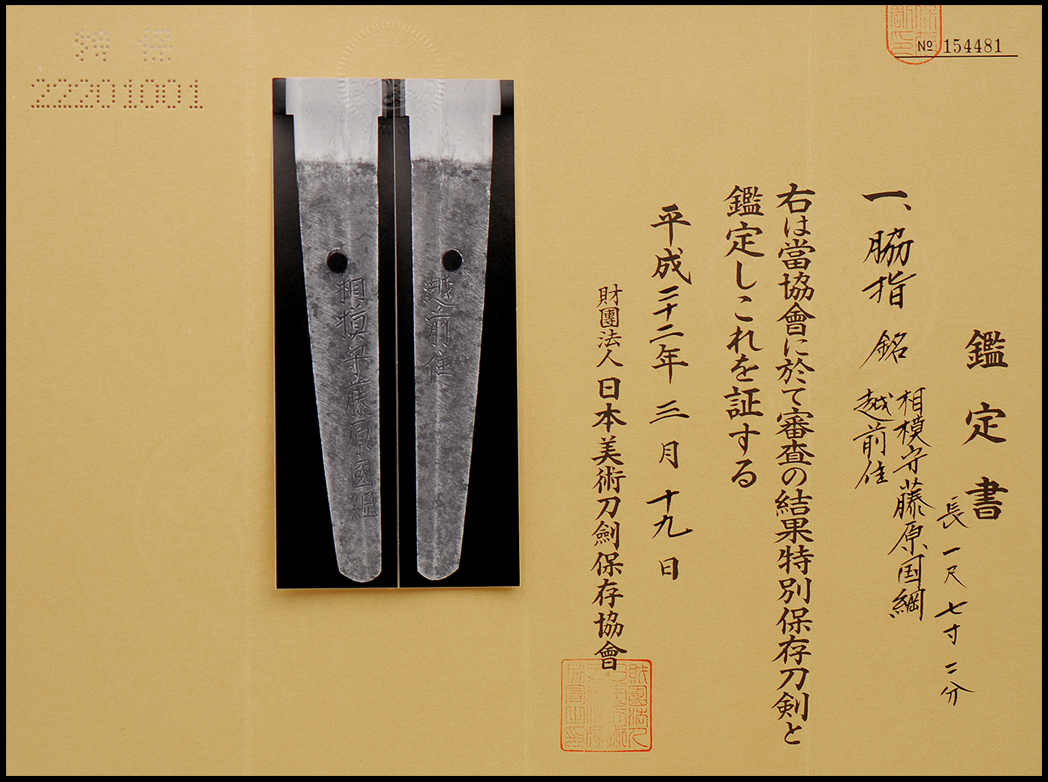 No 154481
鑑定書
一、脇指 銘 相模守藤原国綱
越前住
長一尺七寸二分
右は當協會に於て審査の結果特別保存刀剣と
鑑定しこれを証する
平成二十二年三月十九日
財團法人日本美術刀劍保存協會
特保
22201001
相模守藤原國綱
越前住